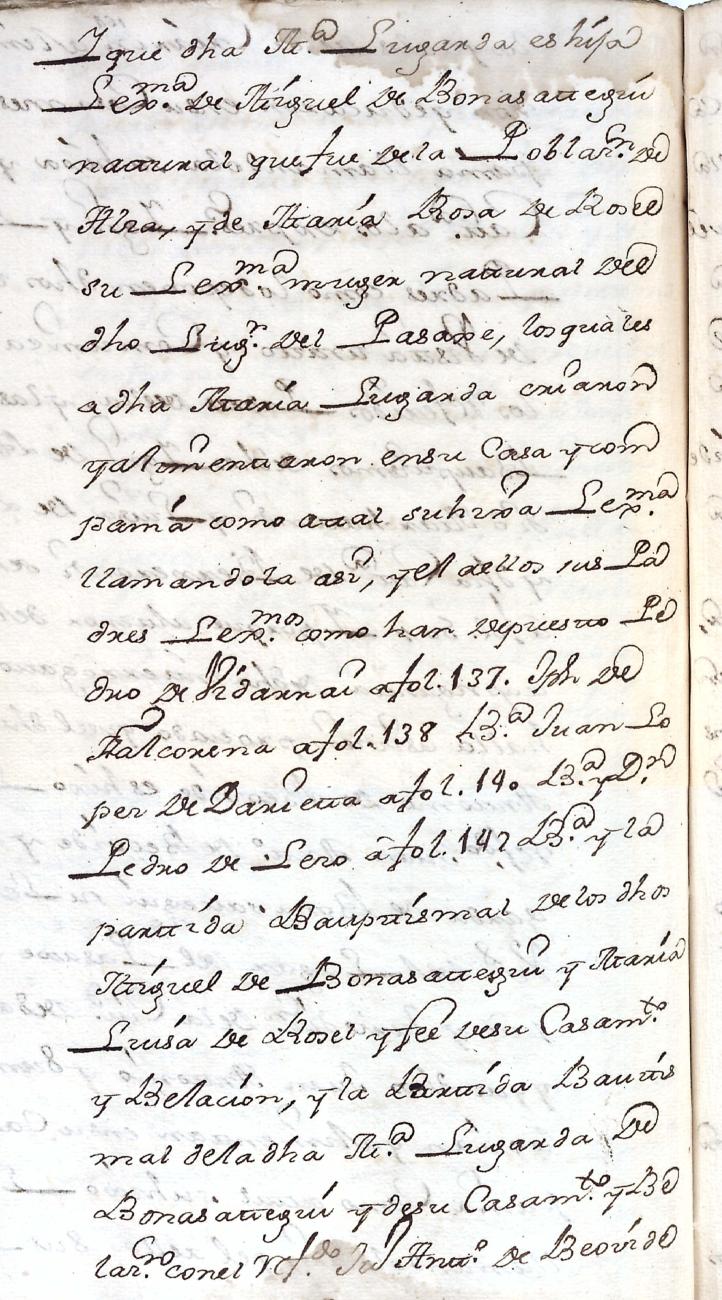 Y que dha M.ª Luganda es hija
Lex.ma de Miguel de Bonasattegui
nattural que fue de la Poblaz.on de
Alza, y de Maria Rosa de Rosel
su Lex.ma muger nattural del
dho Lug.r del Pasaxe, los quales
a dha Maria Luganda criaron
y alimenttaron en su Casa y com
pamá como a ttal su hixa Lex.ma
llamandola asi, y ella a ellos sus Pa
dres Lex.mos como han depuestto Pe
dro de Vidarrai a fol. 137. Jph de
Halcorena a fol. 138 B.ª Juan Lo
pez de Darietta a fol. 140 B.ª y D.n
Pedro de Lezo â fol. 142 B.ª y la
parttida Bapttismal de los dhos
Miguel de Bonasattegui y Maria
Luisa de Rosel y fee de su Casam.to
y Belacion, y la Parttida Bauttis
mal de la dha M.ª Luganda de
Bonasattegui y de su Casam.to y Be
laz.on con el rf.do Jn Antt.o de Beovide